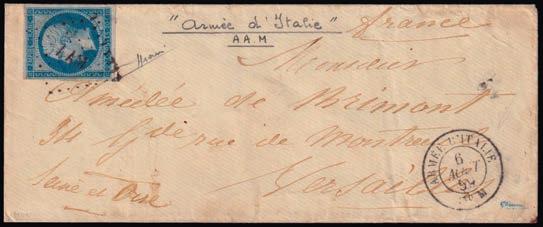 "Armée d'Italie"
A.A.M
France
Monsieur
Amédée de Brimont
34 Gde rue de Montreuil
Versailles
Seine et Oise
ARMÉE D'ITALIE
6
AOUT
59